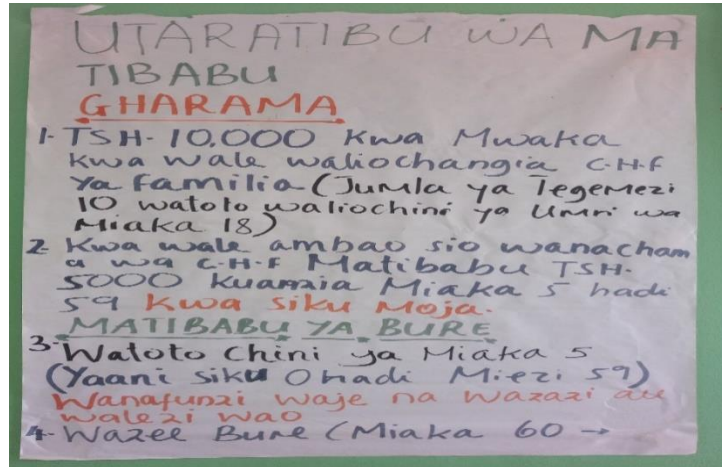 UTARATIBU WA MA
TIBABU
GHARAMA
1- TSH- 10,000 Kwa Mwaka
Kwa wale waliochangia C-H-F
Ya familia (Jumla ya Tegemezi
10 watoto waliochini ya Umri wa
Miaka 18)
2- Kwa wale ambao sio wanacham
a wa C-H-F Matibabu TSH-
5000 Kuanzia Miaka 5 hadi
59 Kwa siku Moja.
MATIBABU YA BURE
3- Watoto Chini ya Miaka 5
(Yaani siku 0 hadi Miezi 59)
Wanafunzi waje na wazazi au
walezi wao
4- Wazee Bure (Miaka 60 →